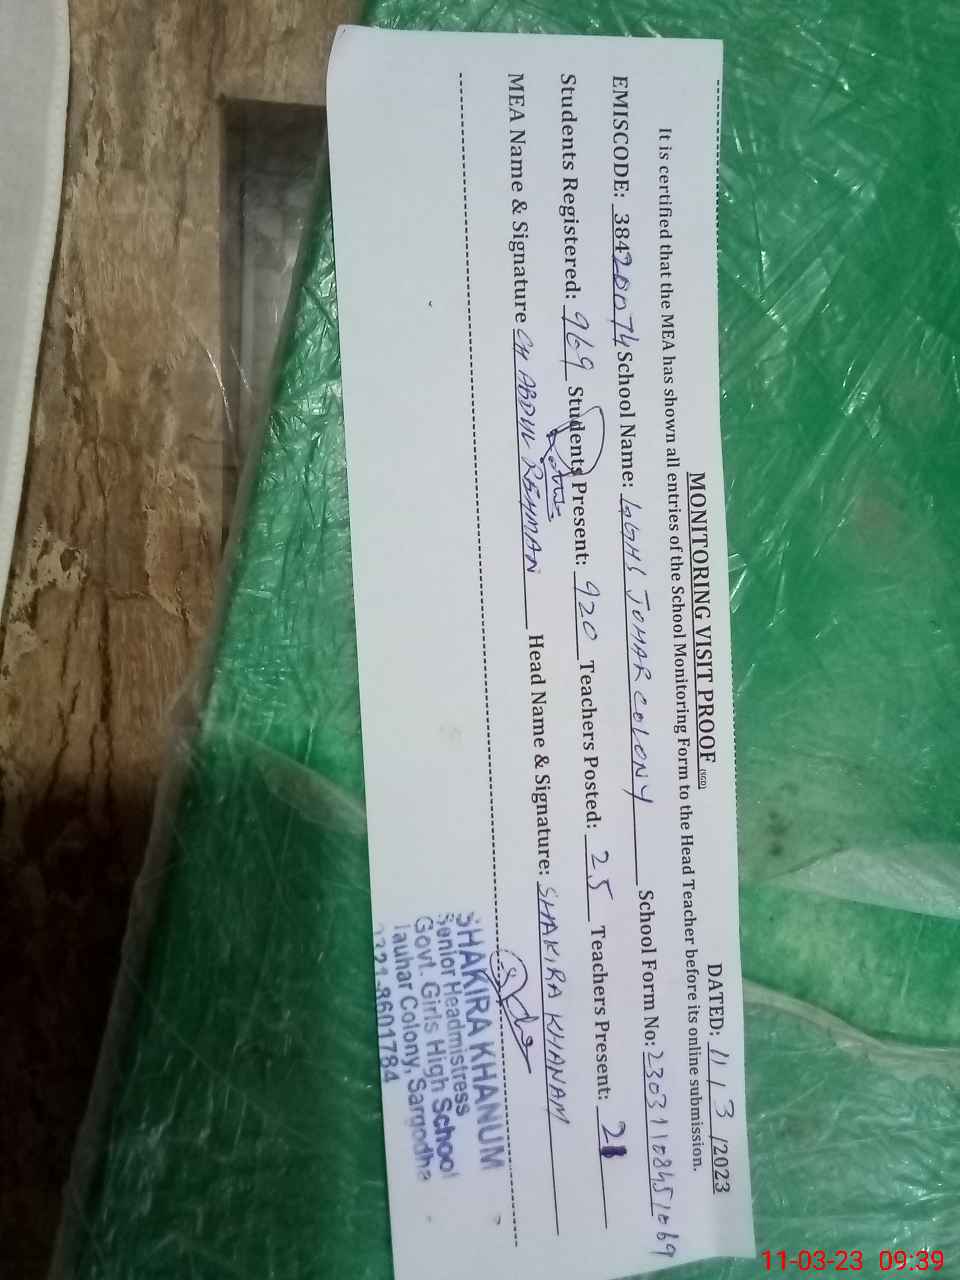 MONITORING VISIT PROOF (SGD) DATED: 11/3/2023
It is certified that the MEA has shown all entries of the School Monitoring Form to the Head Teacher before its online submission.
EMISCODE: 38420074 School Name: GGHS JOHAR COLONY School Form No:
Students Registered: 969 Students Present: 920 Teachers Posted: 25 Teachers Present: 21
MEA Name & Signature CH ABDUL REHMAN Head Name & Signature: SHAKIRA KHANAM
SHAKIRA KHANUM
Senior Headmistress
Govt. Girls High School
Jauhar Colony, Sargodha
11-03-23 09:39